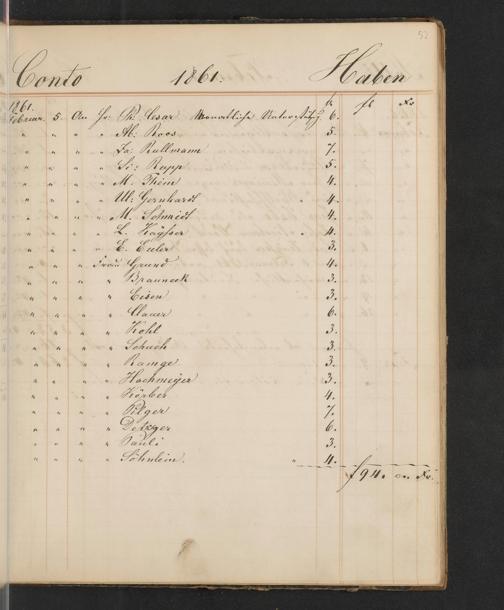 52
Conto 1861. Haben
1861. fr fl Xr
Februar 5. An Hr: Ph: Cesar Monatliche Unterstützg 6.
" " " " Ab: Roos 5.
" " " " Ja: Rullmann 7.
" " " " Si: Rupp 5.
" " " " M. Thim 4.
" " " " Ul: Gernhardt " 4.
" " " " M. Schmidt 4.
" " " " L. Kayßer " 4.
" " " " E. Euler 3.
" " " Frau Grund 4.
" " " " Brauneck 3.
" " " " Eisen 3.
" " " " Clauer 6.
" " " " Kohl 3.
" " " " Schuch 3.
" " " " Ramge 3.
" " " " Hochmeyer 3.
" " " " Körber 4.
" " " " Pilger 7.
" " " " Detzger 6.
" " " " Pauli 3.
" " " " Söhnlein. " 4.
f 94. " Xr.